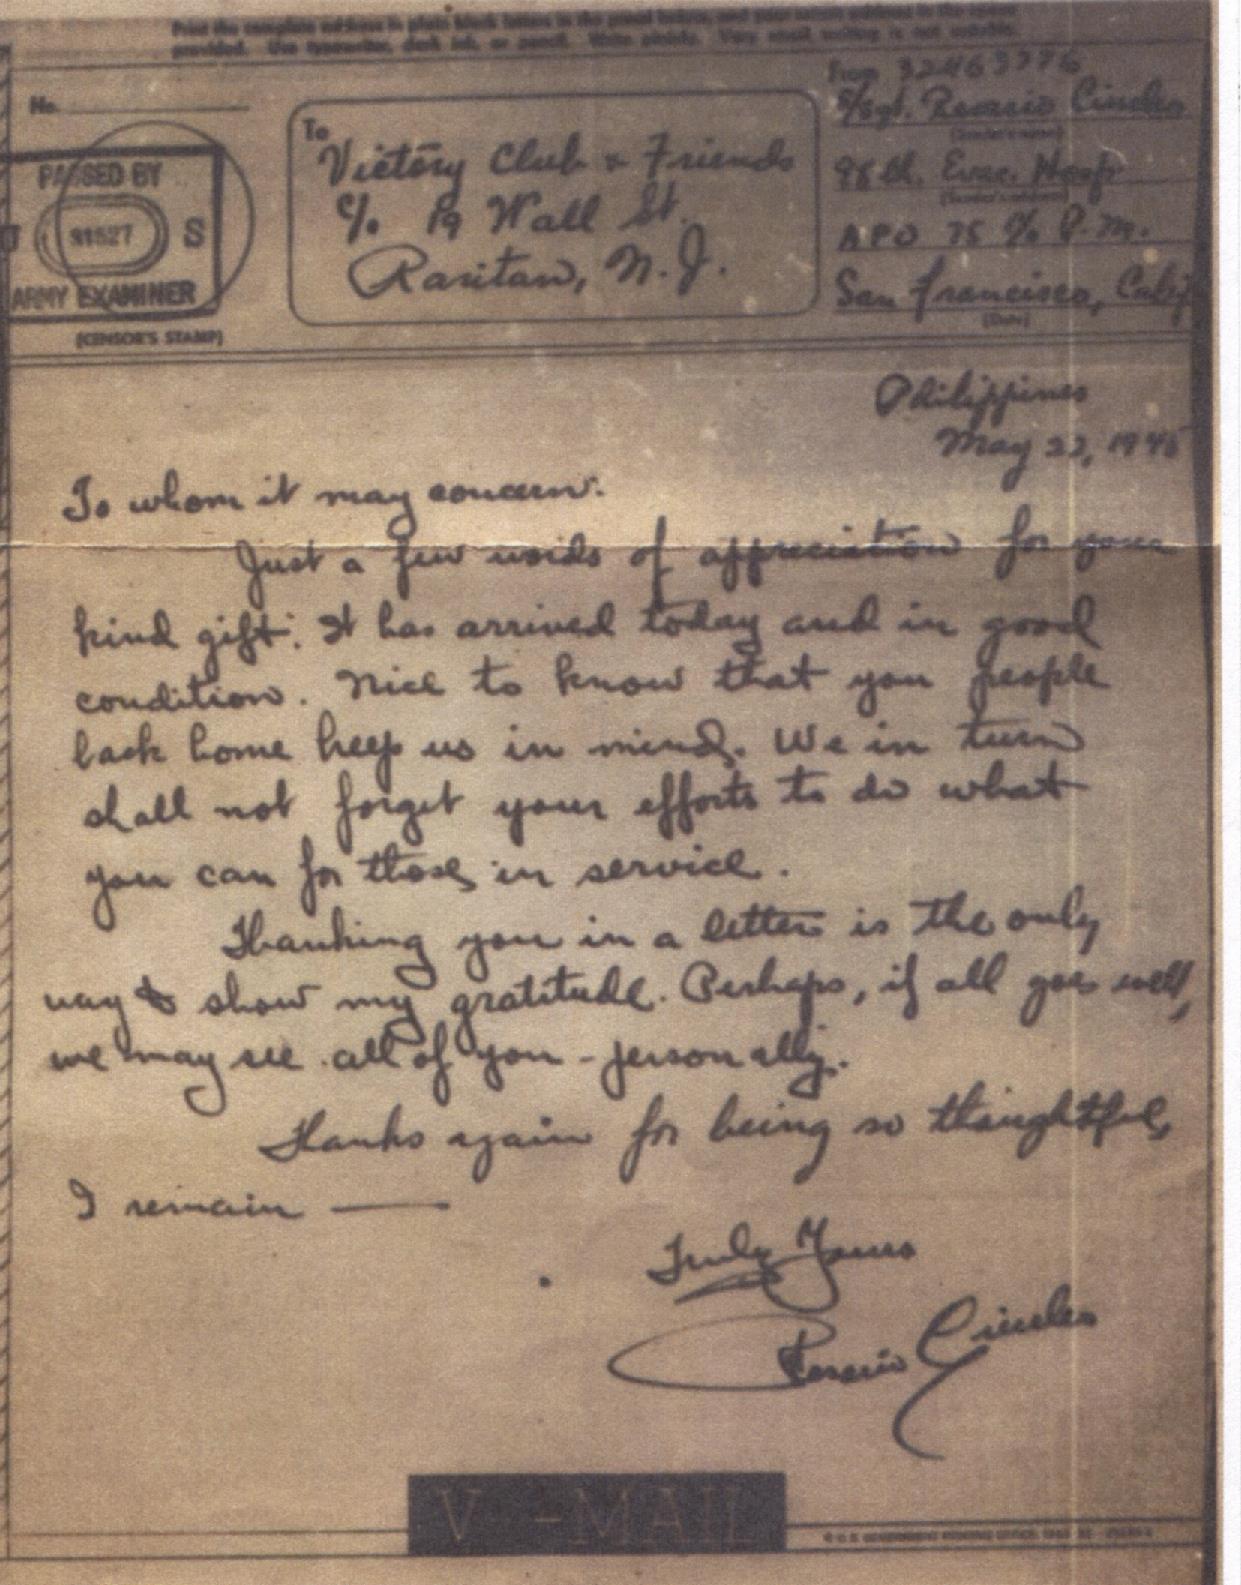 Print the complete address in plain block letters in the panel below, and your return address in the space
provided. Use typewriter, dark ink, or pencil. Write plainly. Very small writing is not suitable.
No.
PASSED BY
S
ARMY EXAMINER
(CENSOR'S STAMP)
To
Victory Club & Friends
c/o 19 Wall St.
Raritan, N. J.
From 32463776
S/Sgt. Rosario
(Sender's name)
98th. Evac. Hosp
(Sender's address)
APO 75 c/o P.M.
San Francisco, Calif
(Date)
Philippines
May 22, 1945
To whom it may concern:
Just a few words of appreciation for your
kind gift. It has arrived today and in good
condition. Nice to know that you people
back home keep us in mind. We in turn
shall not forget your efforts to do what
you can for those in service.
Thanking you in a letter is the only
way to show my gratitude. Perhaps, if all goes well,
we may see all of you - personally.
Thanks again for being so thoughtful,
I remain —
Truly Yours
Rosario
V - MAIL